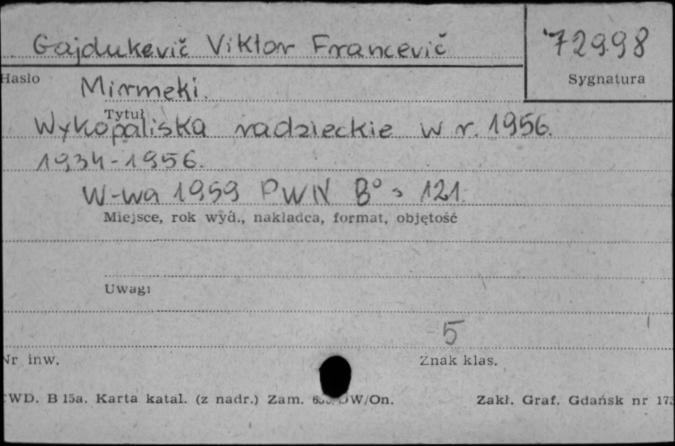 Gajdukevič Viktor Francevič
72998
Hasło
Sygnatura
Mirmeki.
Tytuł
Wykopaliska radzieckie w r. 1956.
1934-1956.
W-wa 1959 PWN 8° s 121.
Miejsce, rok wyd., nakładca, format, objętość
Uwagi
5
Nr inw.
Znak klas.
WD. B 15a. Karta katal. (z nadr.) Zam. W/On.
Zakł. Graf. Gdańsk nr